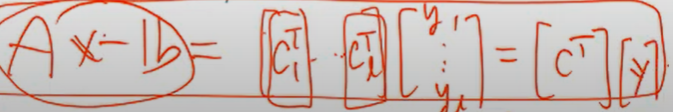 Ax - b = [C₁ᵀ] ⋯ [C_ℓᵀ] [y₁ ⋮ y_ℓ] = [Cᵀ][y]